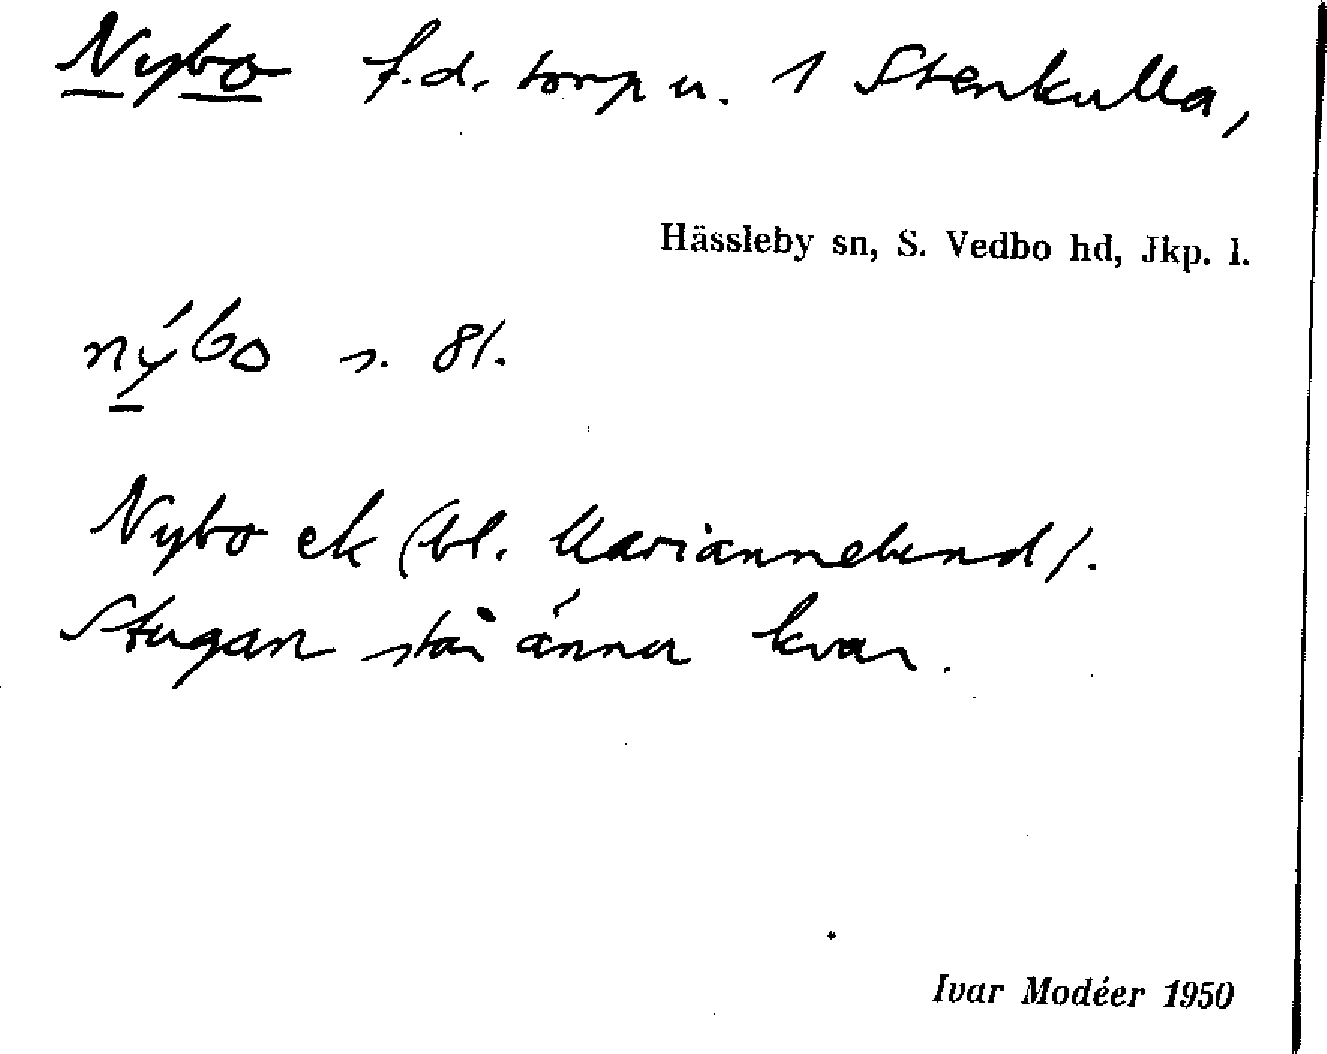 Nybo f.d. torp u. 1 Stenkulla,
Hässleby sn, S. Vedbo hd, Jkp. l.
nýbo s. 81.
Nybo ek (bl. Mariannelund).
Stugan står ännu kvar.
Ivar Modéer 1950